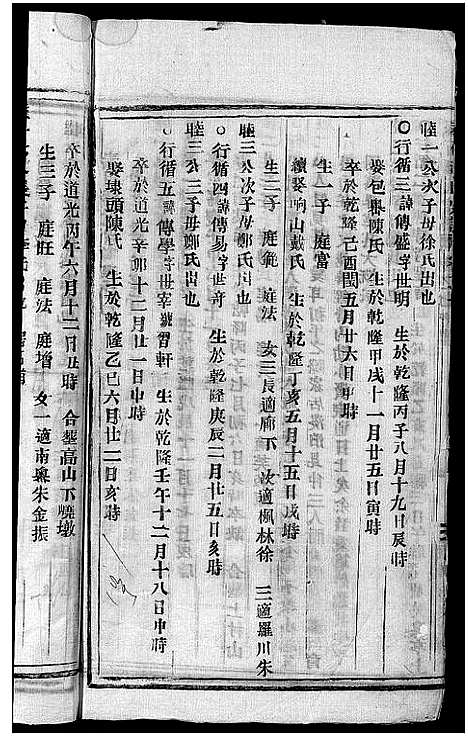 睦一公次子母徐氏出也
○行循三諱傳盛字世明　生於乾隆丙子八月十九日辰時
娶包舉陳氏　生於乾隆甲戌十一月廿五日寅時
卒於乾隆己酉閏五月廿六日申時
生一子　庭富
續娶响山戴氏　生於乾隆丁亥五月十五日戌時
生二子　庭範　庭法　女三長適廊下　次適楓林徐　三適羅川朱
睦三公次子母鄭氏出也
○行循四諱傳易字世奇　生於乾隆庚辰二月廿五日亥時
睦三公三子母鄭氏出也
○行循五諱傳學字世宰號習軒　生於乾隆壬午十二月十八日申時
卒於道光辛卯十二月廿一日申時
娶埭頭陳氏　生於乾隆乙巳六月廿二日亥時
卒於道光丙午六月十二日丑時　合塟高山下燒墩
生三子　庭旺　庭法　庭增　女一適南奧朱金振